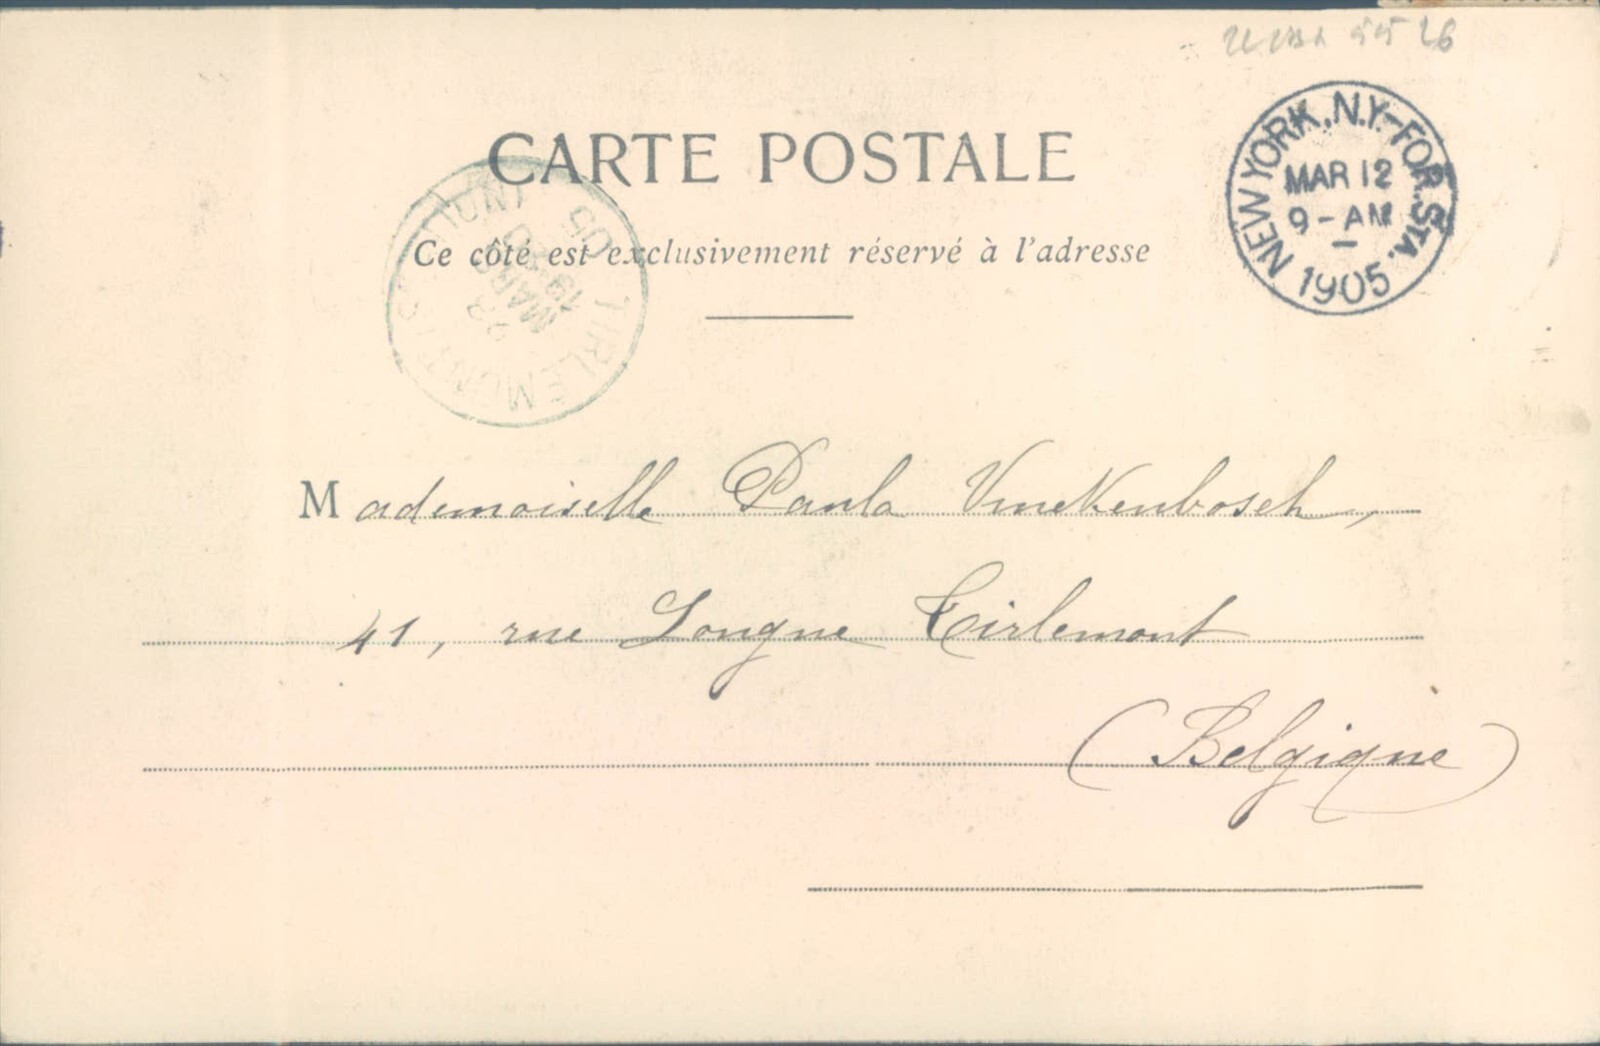 CARTE POSTALE
NEW YORK, N.Y.-FOR. STA.
MAR 12
9-AM
1905
Ce côté est exclusivement réservé à l'adresse
TIRLEMONT
22
MARS
1905
Mademoiselle Paula Vinckenbosch,
41, rue Longue Tirlemont
(Belgique)